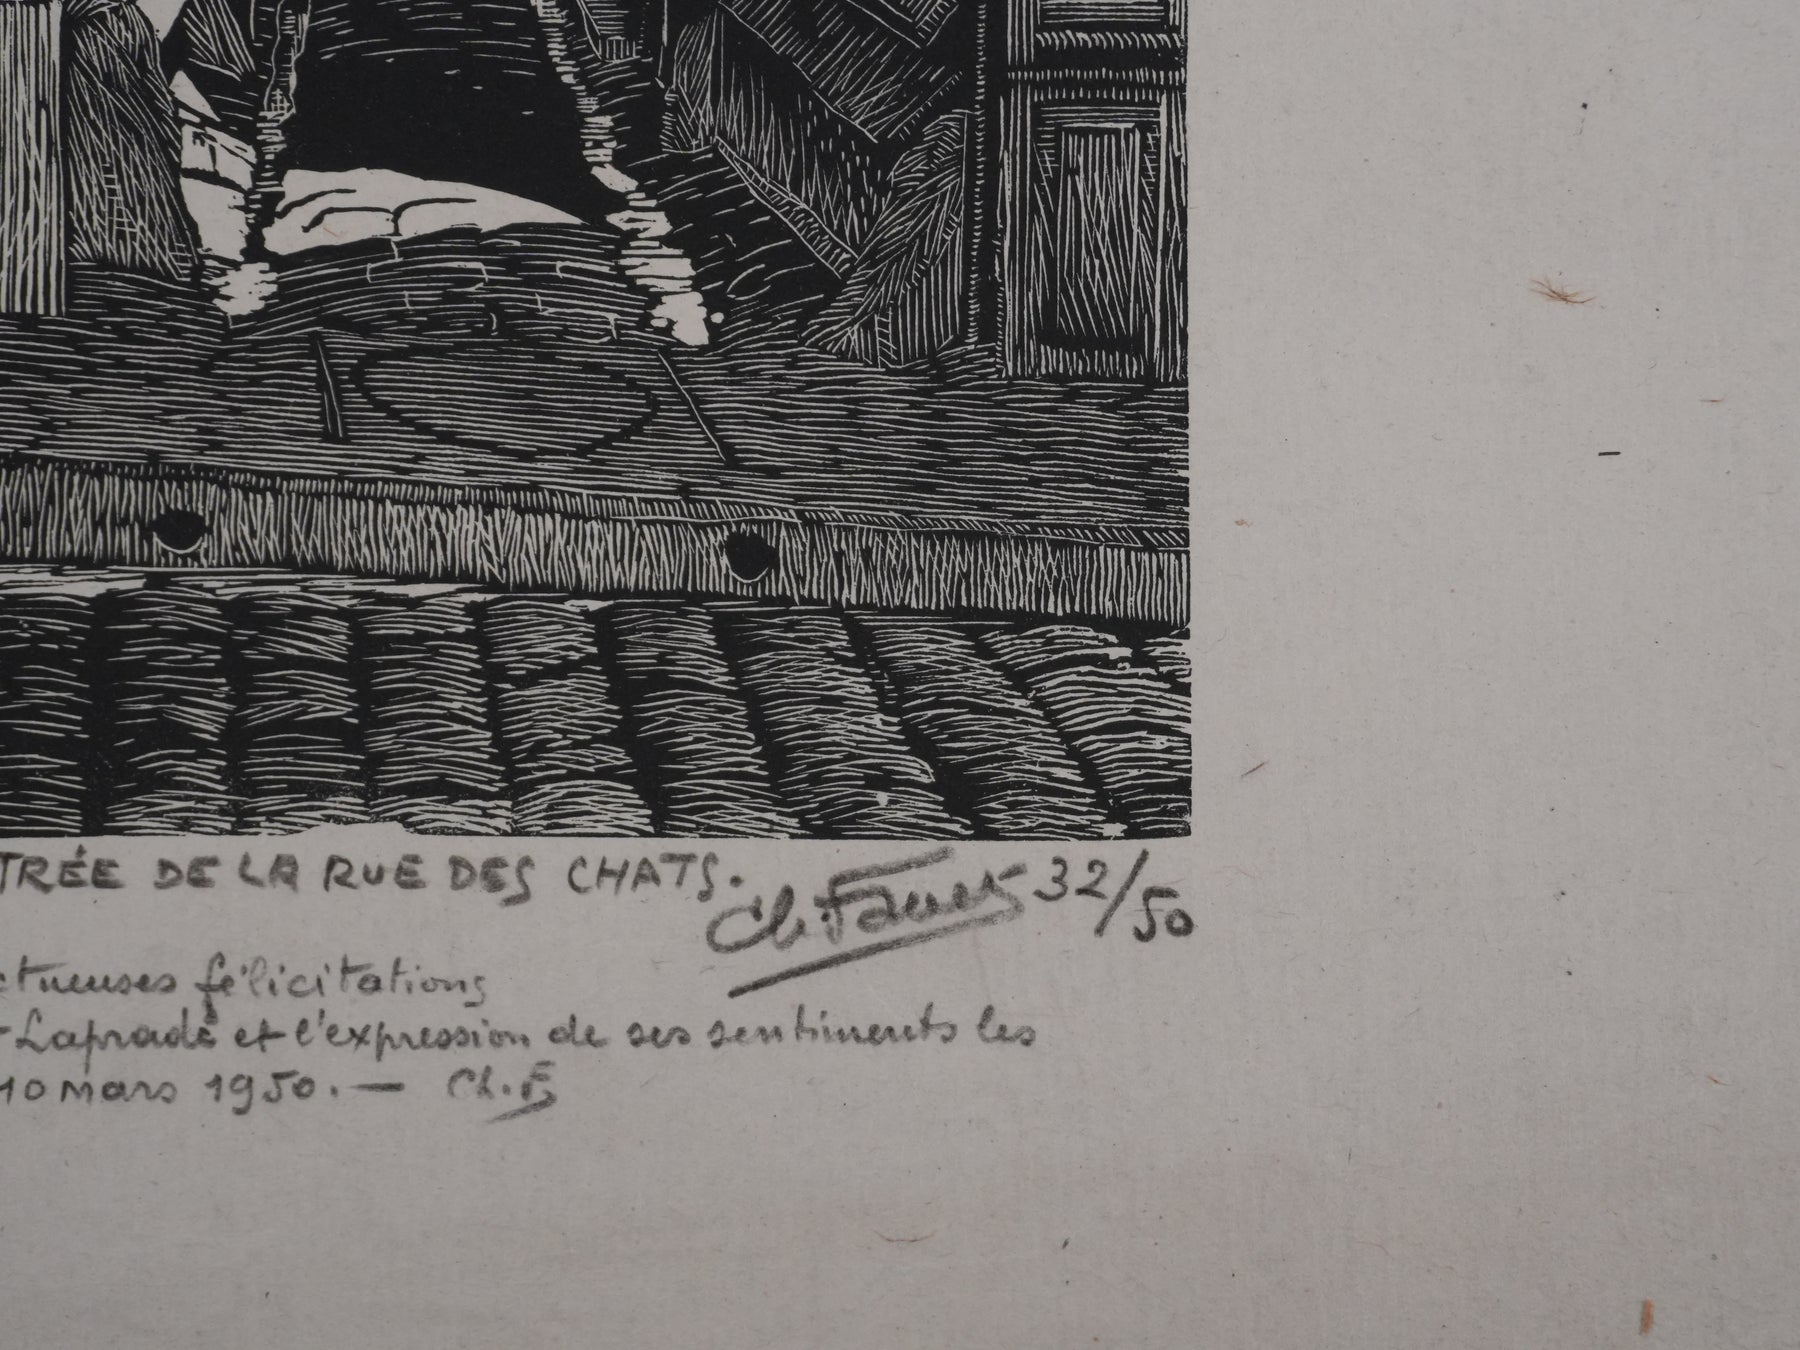 TRÉE DE LA RUE DES CHATS. Ch. Favet 32/50
ctueuses félicitations
Laprade et l'expression de ses sentiments les
10 mars 1950. — Ch. F.